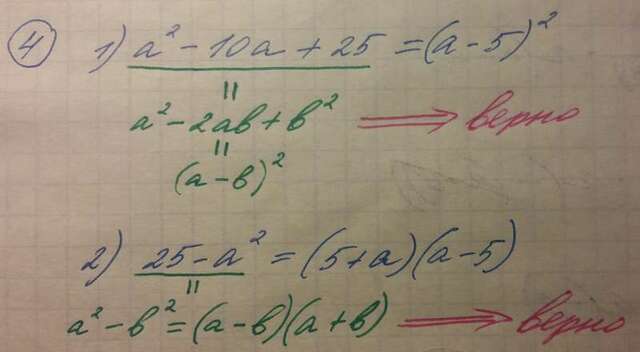 4 1) a² - 10a + 25 = (a - 5)²
=
a² - 2ab + b² ⟹ верно
=
(a - b)²
2) 25 - a² = (5 + a)(a - 5)
=
a² - b² = (a - b)(a + b) ⟹ верно